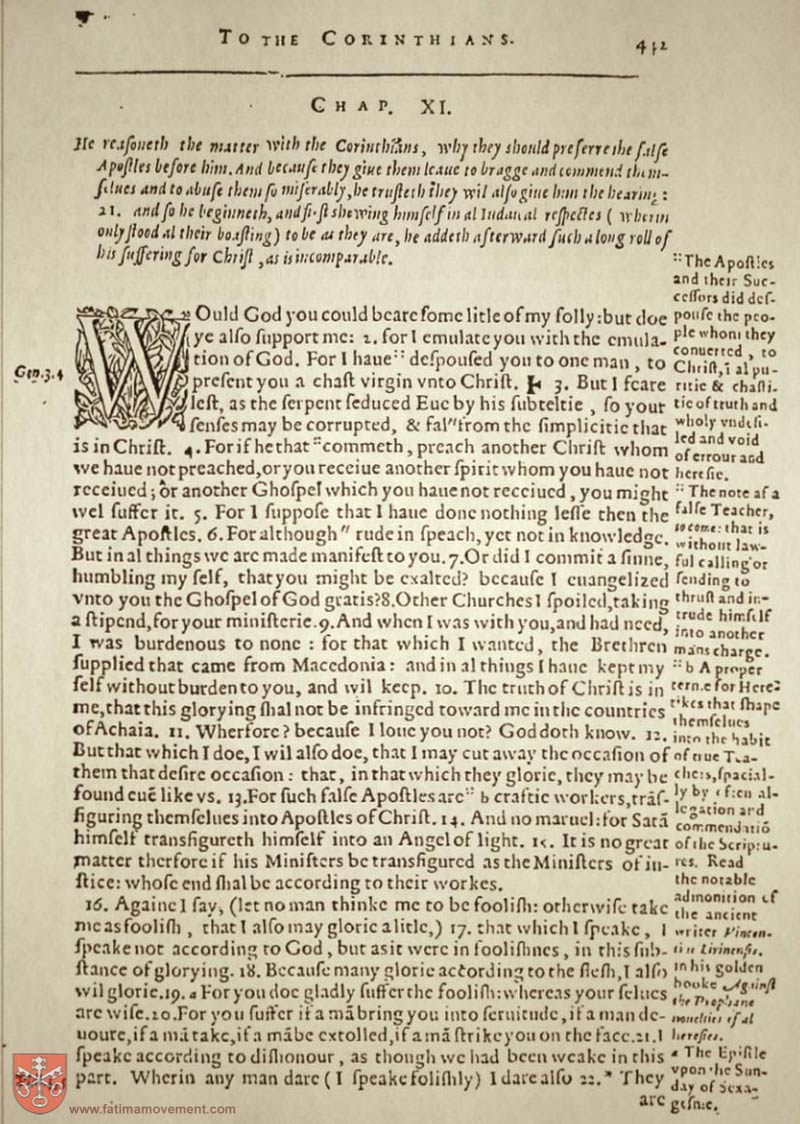 TO THE CORINTHIANS.
CHAP. XI.
He reaſoneth the matter with the Corinthians, why they should preferre the falſe
Apoſtles before him. And becauſe they giue them leaue to bragge and commend them-
ſelues and to abuſe them ſo miſerably, he truſteth they wil alſo giue him the hearing:
21. and ſo he beginneth, and firſt shewing himſelf in al Iudaical reſpectes ( wherin
only ſtood al their boaſting) to be as they are, he addeth afterward ſuch a long roll of
his ſuffering for Chriſt, as is incomparable.
WOuld God you could beare ſome litle of my folly: but doe
ye alſo ſupport me: 2. for I emulate you with the emula-
tion of God. For I haue :: deſpouſed you to one man, to
preſent you a chaſt virgin vnto Chriſt. 3. But I feare
leſt, as the ſerpent ſeduced Eue by his ſubteltie, ſo your
ſenſes may be corrupted, & fal" from the ſimplicitie that
is in Chriſt. 4. For if he that :: commeth, preach another Chriſt whom
we haue not preached, or you receiue another ſpirit whom you haue not
receiued; or another Ghoſpel which you haue not receiued, you might
wel ſuffer it. 5. For I ſuppoſe that I haue done nothing leſſe then the
great Apoſtles. 6. For although " rude in ſpeach, yet not in knowledge.
But in al things we are made manifeſt to you. 7. Or did I commit a ſinne,
humbling my ſelf, that you might be exalted? becauſe I euangelized
vnto you the Ghoſpel of God gratis? 8. Other Churches I ſpoiled, taking
a ſtipend, for your miniſterie. 9. And when I was with you, and had need,
I was burdenous to none: for that which I wanted, the Brethren
ſupplied that came from Macedonia: and in al things I haue kept my
ſelf without burden to you, and wil keep. 10. The truth of Chriſt is in
me, that this glorying ſhal not be infringed toward me in the countries
of Achaia. 11. Wherfore? becauſe I loue you not? God doth know. 12.
But that which I doe, I wil alſo doe, that I may cut away the occaſion of
them that deſire occaſion: that, in that which they glorie, they may be
found euẽ like vs. 13. For ſuch falſe Apoſtles are :: b craftie workers, trãſ-
figuring themſelues into Apoſtles of Chriſt. 14. And no maruel: for Satã
himſelf transfigureth himſelf into an Angel of light. 15. It is no great
matter therfore if his Miniſters be transfigured as the Miniſters of iu-
ſtice: whoſe end ſhal be according to their workes.
16. Againe I ſay, (let no man thinke me to be fooliſh: otherwiſe take
me as fooliſh, that I alſo may glorie a litle,) 17. that which I ſpeake, I
ſpeake not according to God, but as it were in fooliſhnes, in this ſub-
ſtance of glorying. 18. Becauſe many glorie according to the fleſh, I alſo
wil glorie. 19. a For you doe gladly ſuffer the fooliſh: whereas your ſelues
are wiſe. 20. For you ſuffer if a mã bring you into ſeruitude, if a man de-
uoure, if a mã take, if a mã be extolled, if a mã ſtrike you on the face. 21. I
ſpeake according to diſhonour, as though we had been weake in this
part. Wherin any man dare ( I ſpeake foliſhly) I dare alſo 22. * They
are
Gen. 3. 4
:: The Apoſtles
and their Suc-
ceſſors did deſ-
pouſe the peo-
ple whom they
conuerted, to
Chriſt, ĩ al pu-
ritie & chaſti-
tie of truth and
wholy vndefi-
led and void
of errour and
hereſie.
:: The note of a
falſe Teacher,
to come: that is
without law-
ful calling or
ſending to
thruſt and in-
trude himſelf
into another
mans charge.
:: b A proper
terme for Here-
tikes that ſhape
themſelues
into the habit
of true Tea-
chers, ſpecial-
ly by often al-
legation and
commendatiõ
of the Scriptu-
res. Read
the notable
admonition of
the ancient
writer Vincen-
tius Lirinenſis,
in his golden
booke Againſt
the Prophane
nouelties of al
hereſies.
a The Epiſtle
vpon the Sun-
day of Sexa-
geſme.
www.fatimamovement.com